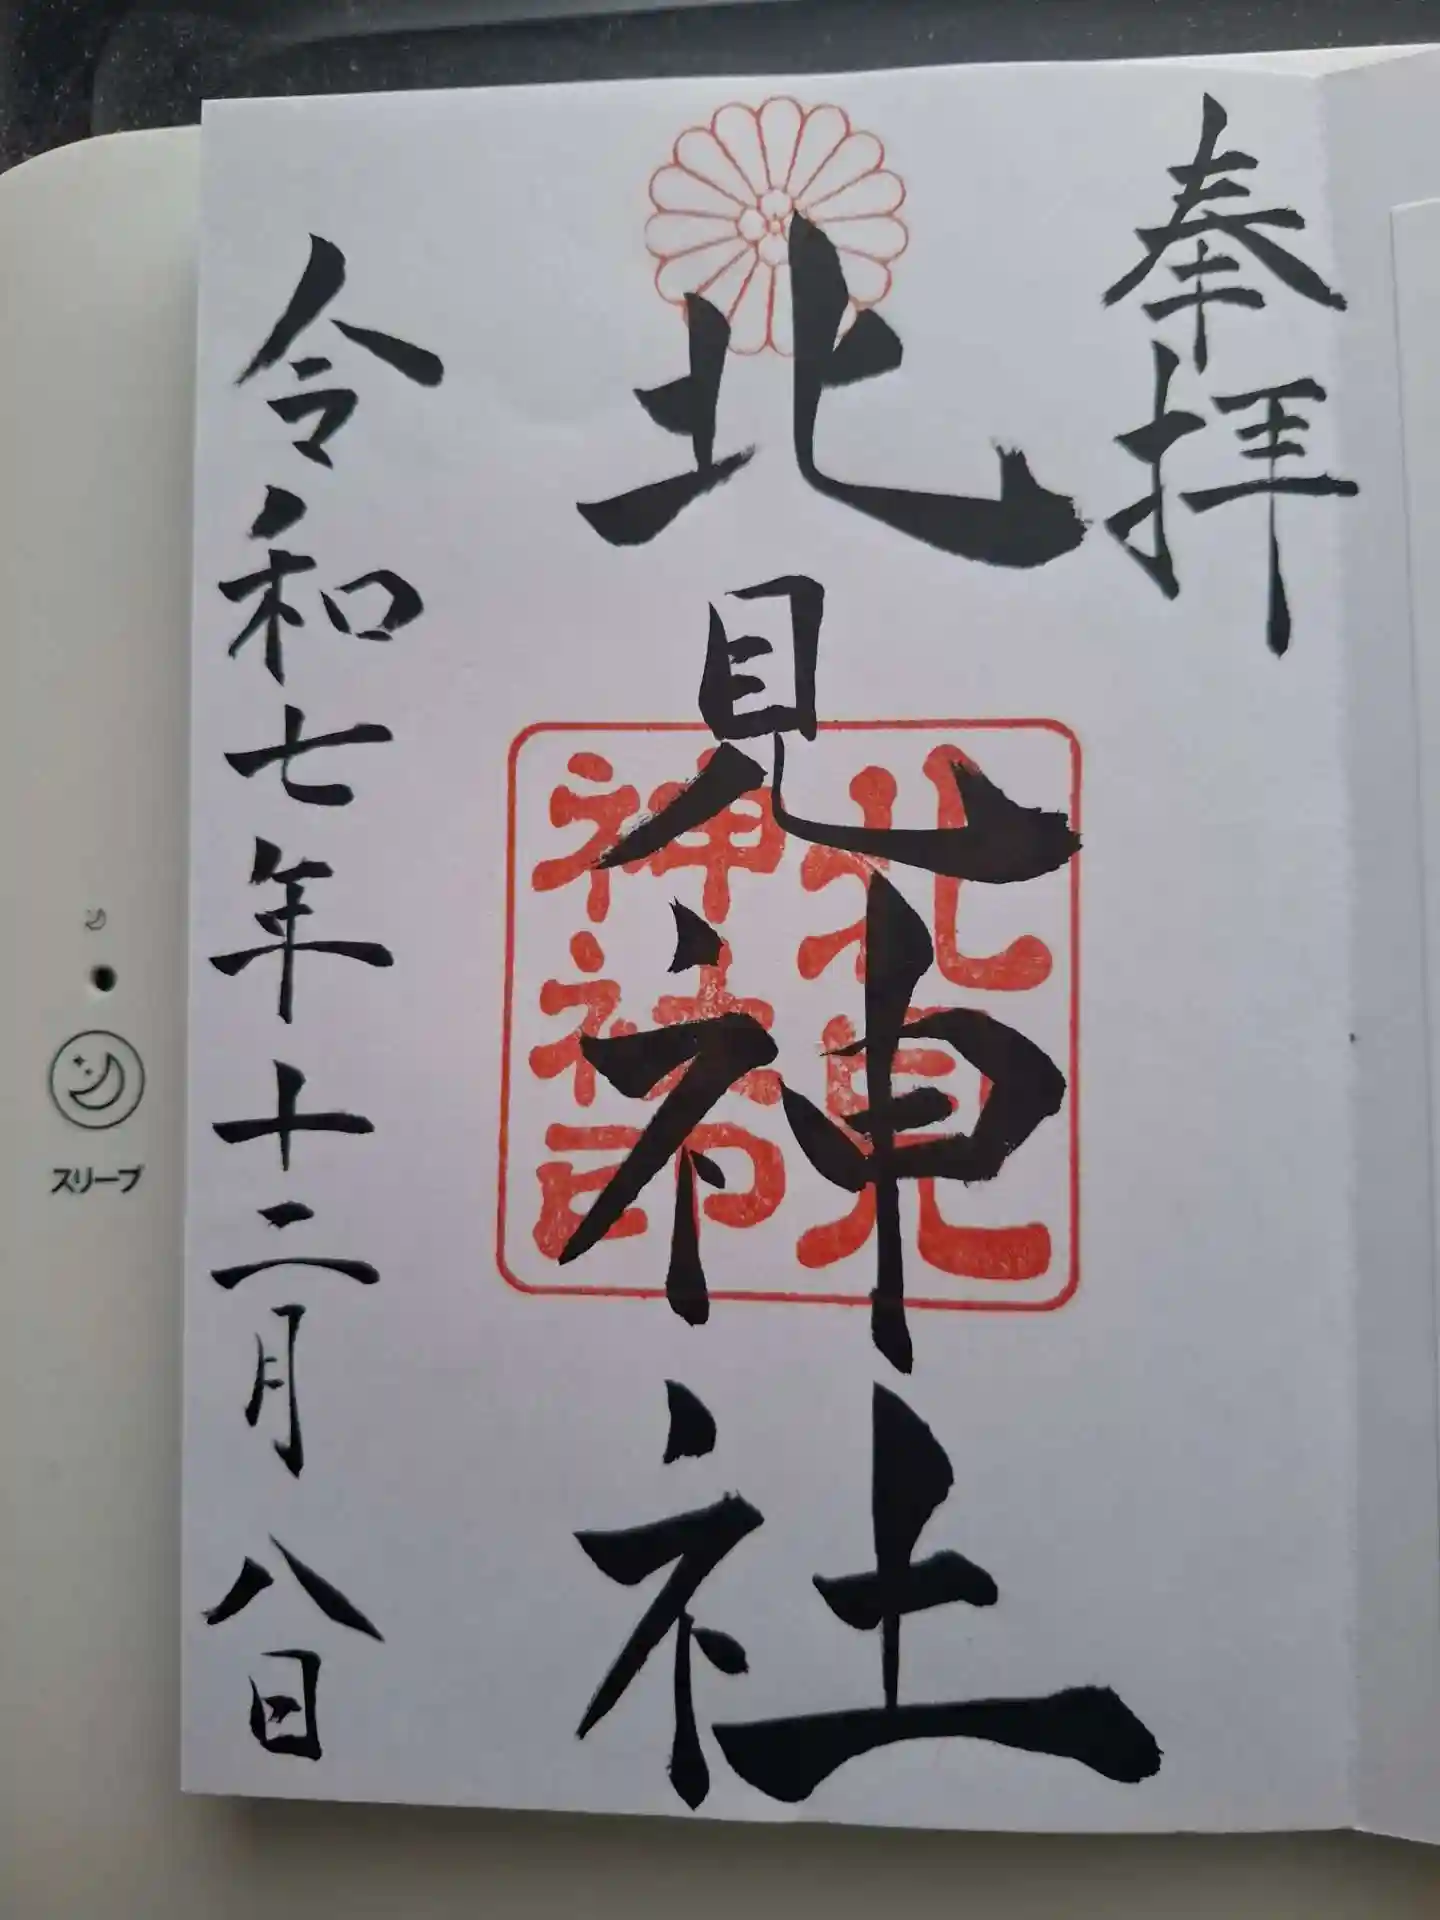 奉拝
北見神社
北見
神社印
令和七年十二月八日
スリープ